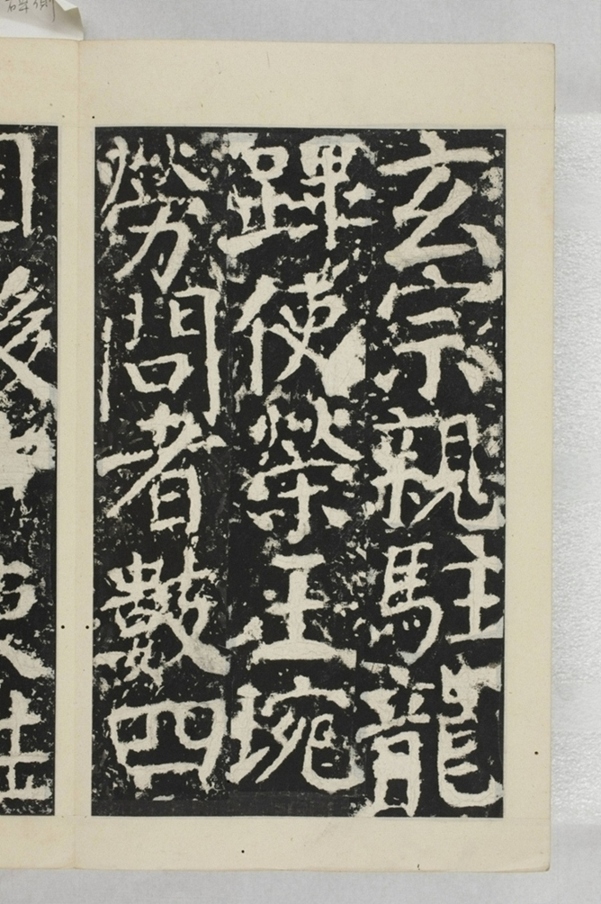 玄宗親駐龍
蹕使榮王琬
勞問者數四